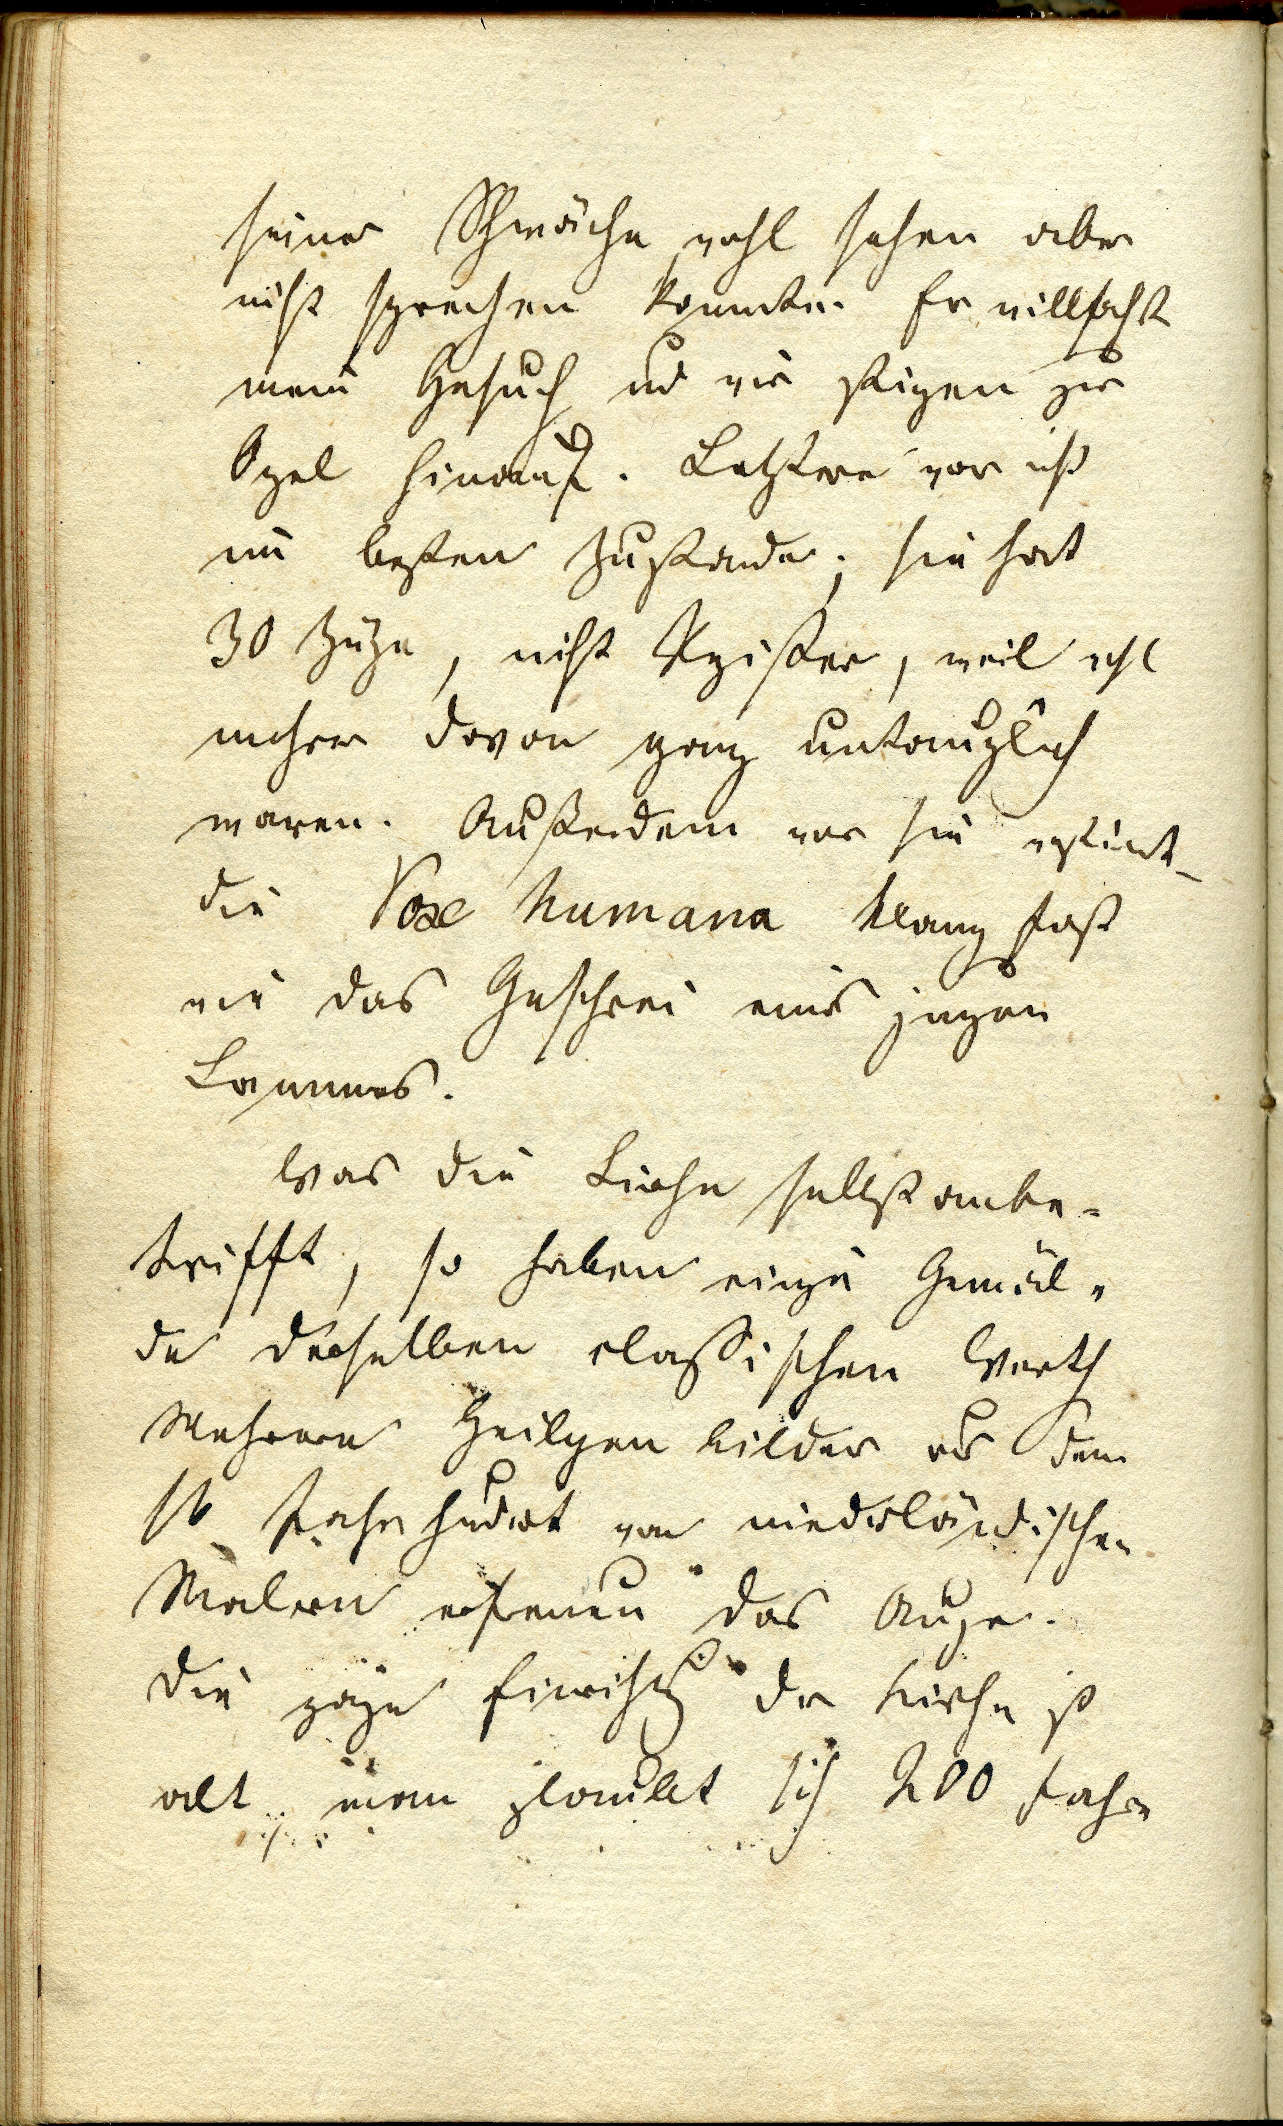 seiner Schwäche wohl sehen aber
nicht sprechen konnte. Er willfahrt
mein Gesuch und wir stigen zur
Ogel hinauf. Letztere war nicht
im besten Zustande; sie hat
30 Züge, nicht Register, weil
mehrere davon ganz untauglich
waren. Außerdem war sie
die Vox humana klang fast
wie das Geschrei eines jungen
Lammes.
Was die Kirche selbst anbe-
trifft, so haben einige Gemäl-
de derselben classischen Werth
Mehrere Heilgen bilder aus dem
16 Jahrhundert von niederländischen
Malern erfreuen das Auge.
Die ganze Einrichtg der Kirche ist
alt man glaubt sich 200 Jahre